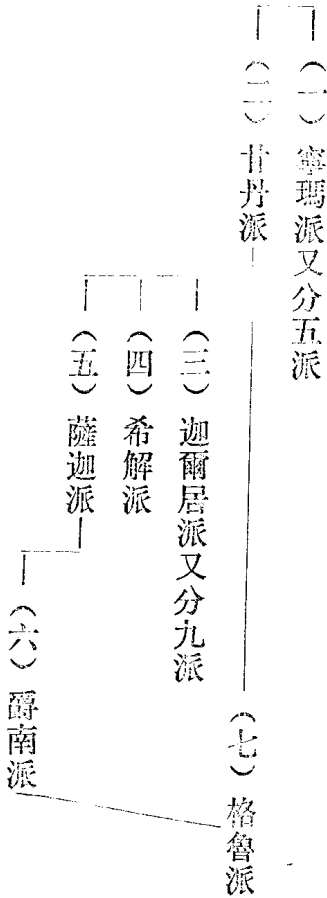 (一) 寧瑪派又分五派
(二) 甘丹派
(三) 迦爾居派又分九派
(四) 希解派
(五) 薩迦派
(六) 爵南派
(七) 格魯派